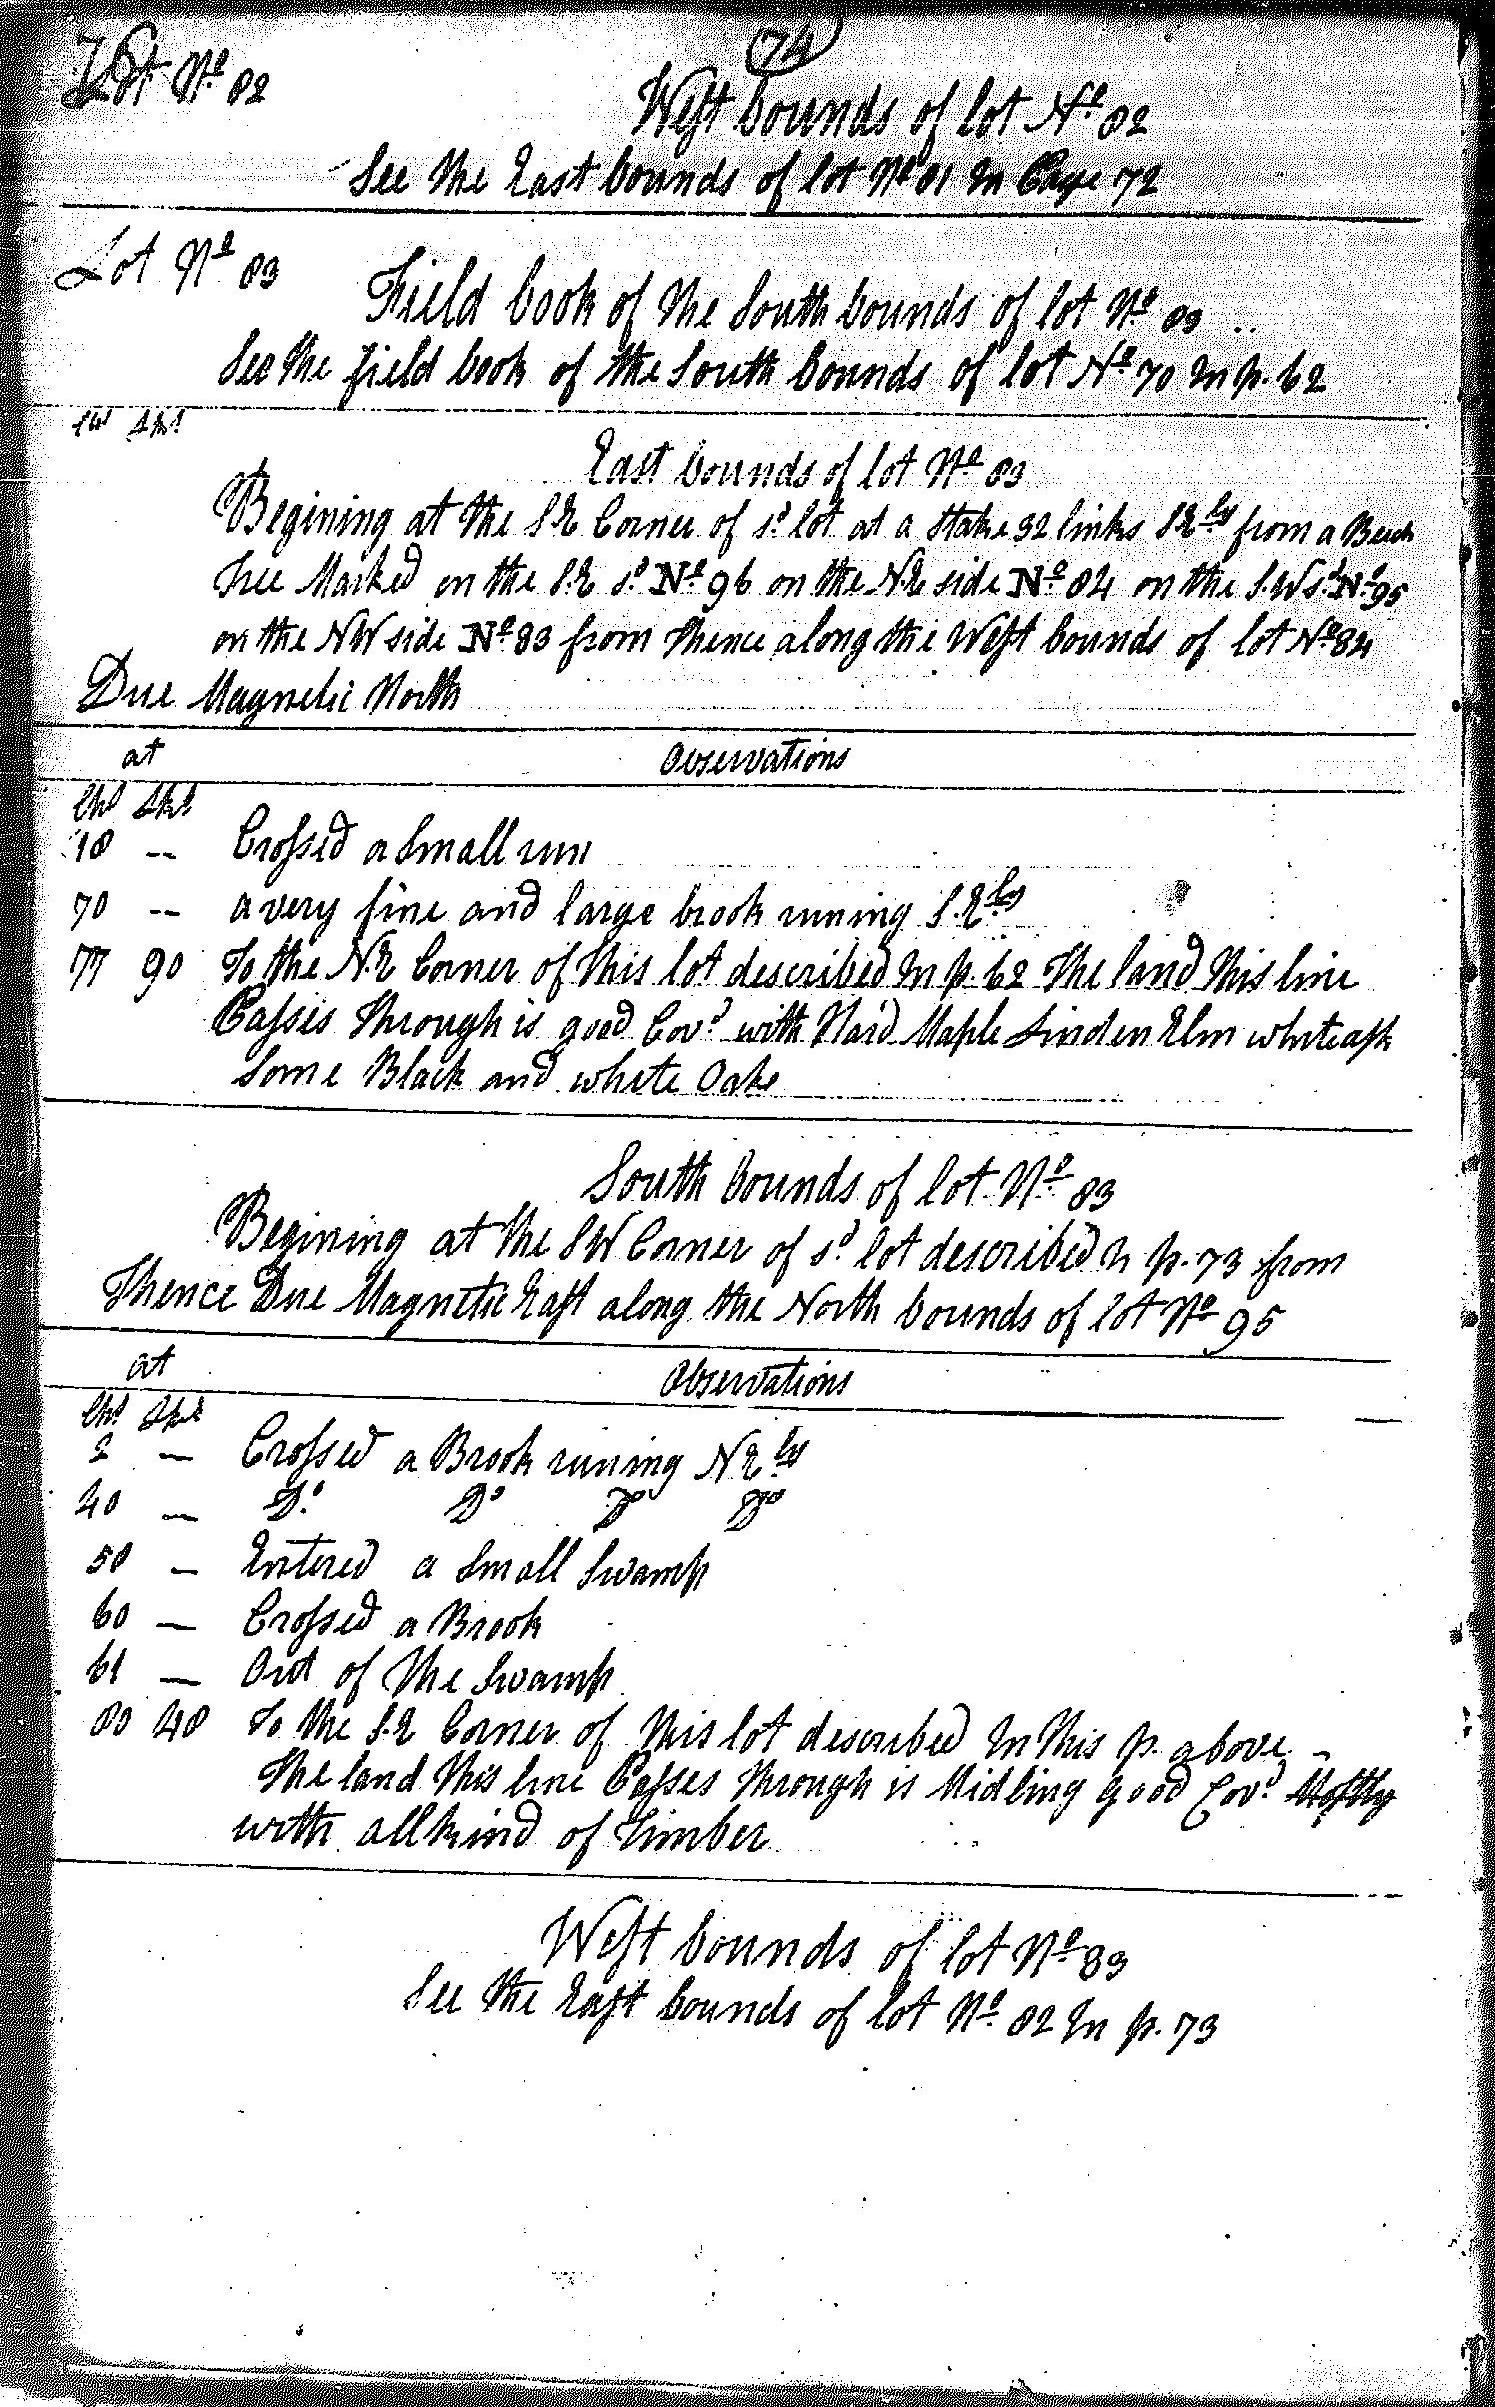 74
Lot No 82
West bounds of lot No 82
See the East bounds of lot No 81 in Page 72
Lot No 83
Field book of the South bounds of lot No 83
See the field book of the South bounds of lot No 70 in p. 62
Chs Lks
East bounds of lot No 83
Begining at the S.E Corner of sd lot at a Stake 32 links S.Ely from a Beech
tree Marked on the S.E sd No 96 on the N.E side No 84 on the S.W sd No 95
on the NW side No 83 from thence along the West bounds of lot No 84
Due Magnetic North
at Observations
Chs Lks
18 -- Crossed a Small run
70 -- a very fine and large brook runing S.Ely
77 90 To the N.E Corner of this lot described in p. 62 The land this line
Passes through is good Covd with Hard Maple Linden Elm white ash
Some Black and white Oake
South bounds of lot No 83
Begining at the SW Corner of sd lot described in p. 73 from
Thence Due Magnetic East along the North bounds of lot No 95
at Observations
Chs Lks
2 — Crossed a Brook runing N Ely
40 — Do Do Do Do
50 — Entered a Small Swamp
60 — Crossed a Brook
61 — Out of the Swamp
80 48 To the S.E Corner of this lot described in this p. above –
The land this line Passes through is Midling good Covd Mostly
with all kind of Timber
West bounds of lot No 83
See the East bounds of lot No 82 in p. 73